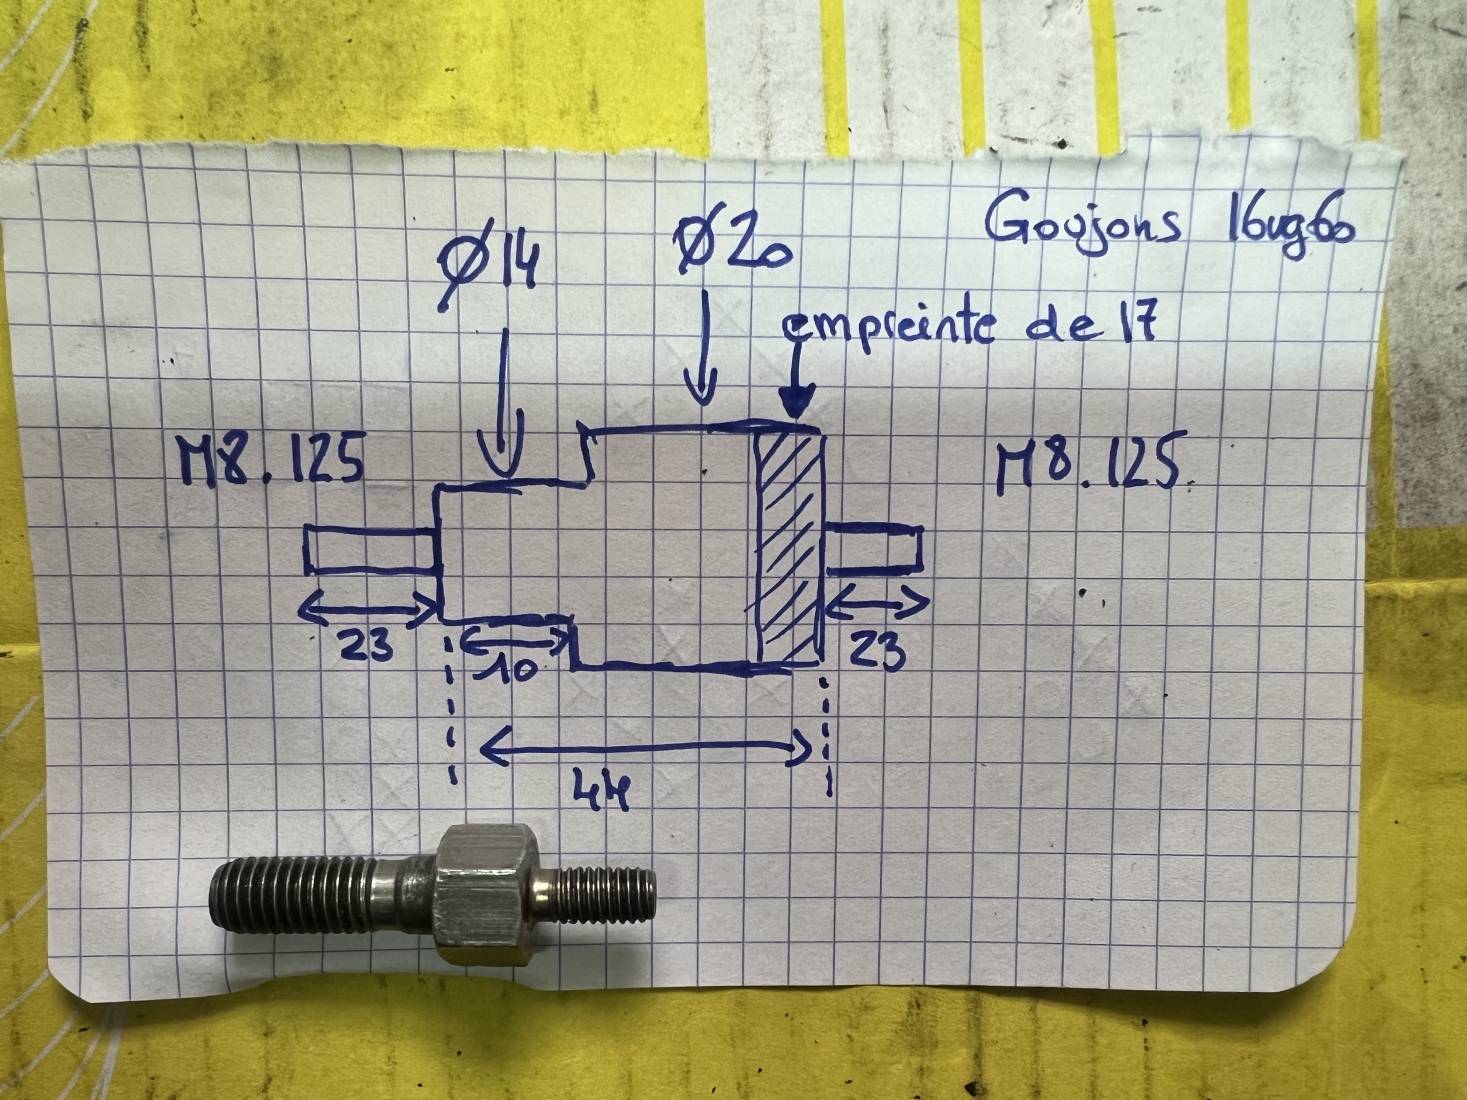 Goujons 16vg60
Ø14
Ø20
empreinte de 17
M8.125
M8.125
23
10
23
44